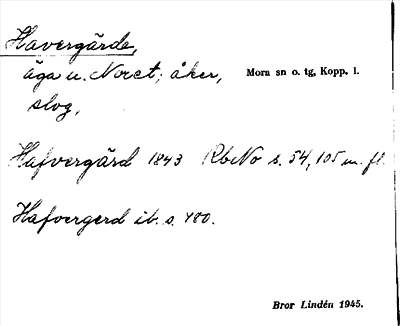 Havergärde,
äga u. Noret; åker,
Mora sn o. tg, Kopp. l.
slog,
Hafvergärd 1843 RbNo s. 54, 105 m. fl.
Hafvergerd ib. s. 480.
Bror Lindén 1945.